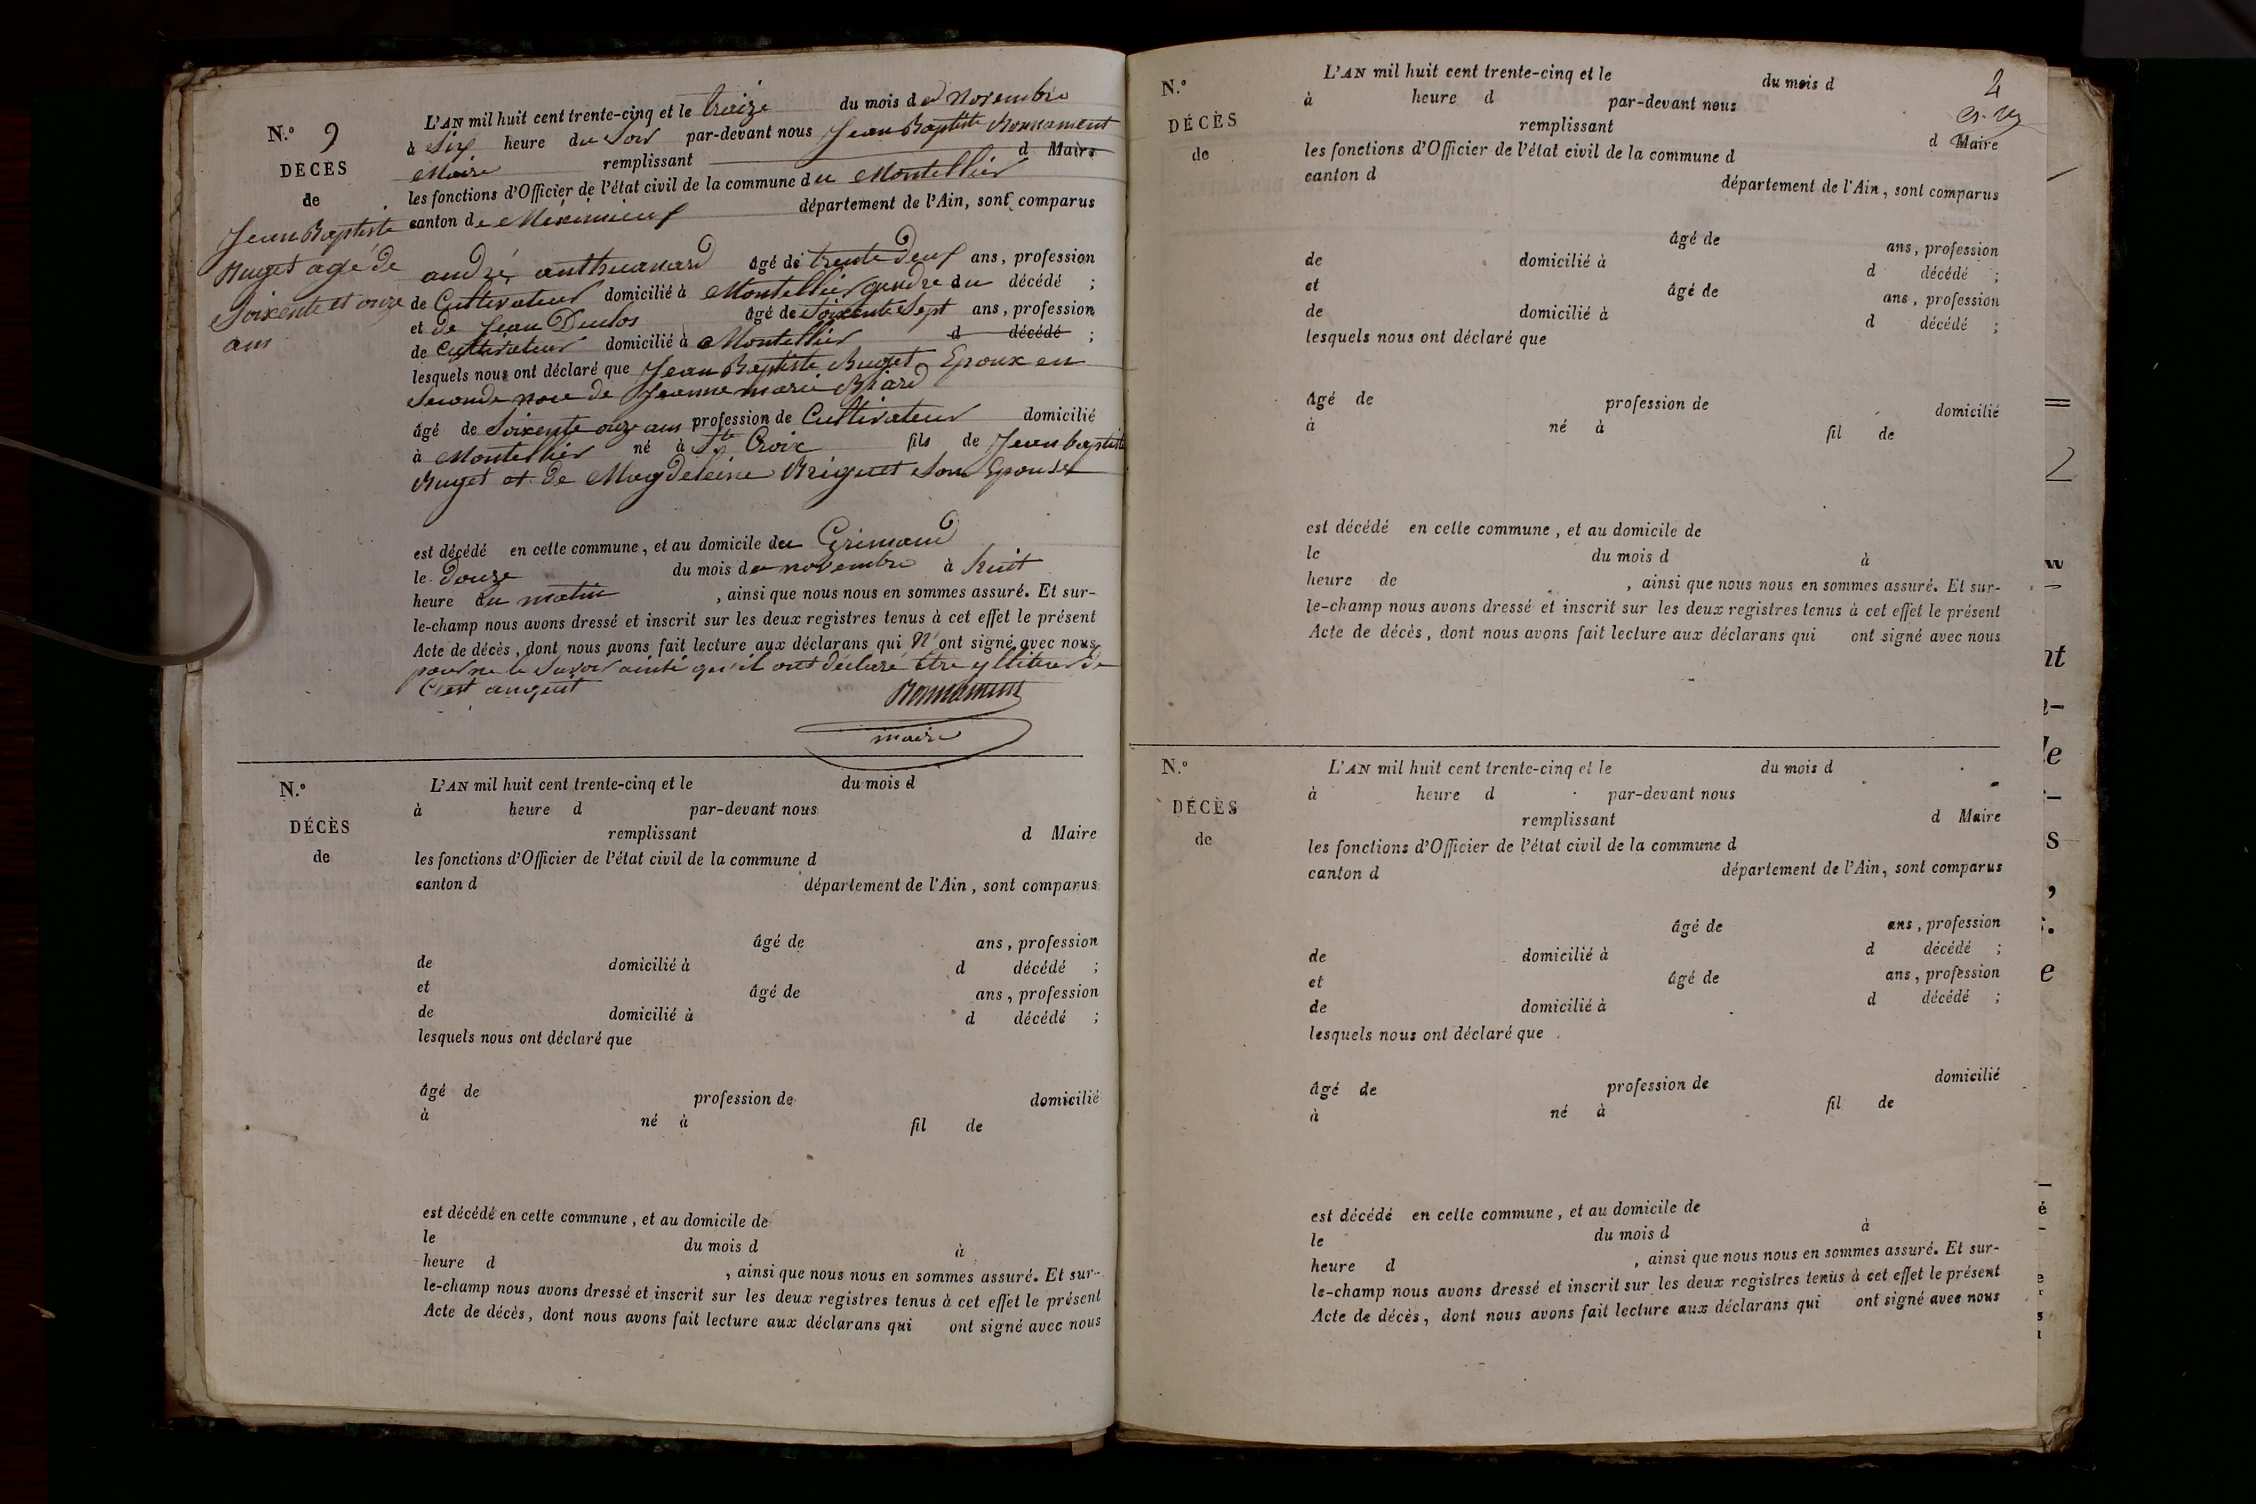 N.º 9
DÉCÈS
de
Jean Baptiste
Buget agé de
Soixente et onze
ans
L'AN mil huit cent trente-cinq et le treize du mois de novembre
à Six heure du Soir par-devant nous Jean Baptiste Bonnament
Maire remplissant d Maire
les fonctions d'Officier de l'état civil de la commune du Montellier
canton de Meximieux département de l'Ain, sont comparus
andré âgé de trente Deux ans, profession
de Cultivateur domicilié à Montellier gendre du décédé ;
et de Jean Duclos âgé de Soixente Sept ans, profession
de Cultivateur domicilié à Montellier d décédé ;
lesquels nous ont déclaré que Jean Baptiste Buget Epoux en
Seconde noce de Jeanne marie Biard
âgé de Soixente onze ans profession de Cultivateur domicilié
à Montellier né à Ste Croix fils de Jean baptiste
Buget et de Magdeleine Briguet Son Epouse
est décédé en cette commune, et au domicile du Grimaud
le Douze du mois de novembre à huit
heure du matin , ainsi que nous nous en sommes assuré. Et sur-
le-champ nous avons dressé et inscrit sur les deux registres tenus à cet effet le présent
Acte de décès, dont nous avons fait lecture aux déclarans qui N' ont signé avec nous
pour ne le Savoir ainsi qu'il ont déclaré être de
C'est
Bonnament
maire
N.º
DÉCÈS
de
L'AN mil huit cent trente-cinq et le du mois d
à heure d par-devant nous
remplissant d Maire
les fonctions d'Officier de l'état civil de la commune d
canton d département de l'Ain, sont comparus
âgé de ans, profession
de domicilié à d décédé ;
et âgé de ans, profession
de domicilié à d décédé ;
lesquels nous ont déclaré que
âgé de profession de domicilié
à né à fil de
est décédé en cette commune, et au domicile de
le du mois d à
heure d , ainsi que nous nous en sommes assuré. Et sur-
le-champ nous avons dressé et inscrit sur les deux registres tenus à cet effet le présent
Acte de décès, dont nous avons fait lecture aux déclarans qui ont signé avec nous
2
N.º
DÉCÈS
de
L'AN mil huit cent trente-cinq et le du mois d
à heure d par-devant nous
remplissant d Maire
les fonctions d'Officier de l'état civil de la commune d
canton d département de l'Ain, sont comparus
âgé de ans, profession
de domicilié à d décédé ;
et âgé de ans, profession
de domicilié à d décédé ;
lesquels nous ont déclaré que
âgé de profession de domicilié
à né à fil de
est décédé en cette commune, et au domicile de
le du mois d à
heure de , ainsi que nous nous en sommes assuré. Et sur-
le-champ nous avons dressé et inscrit sur les deux registres tenus à cet effet le présent
Acte de décès, dont nous avons fait lecture aux déclarans qui ont signé avec nous
N.º
DÉCÈS
de
L'AN mil huit cent trente-cinq et le du mois d
à heure d par-devant nous
remplissant d Maire
les fonctions d'Officier de l'état civil de la commune d
canton d département de l'Ain, sont comparus
âgé de ans, profession
de domicilié à d décédé ;
et âgé de ans, profession
de domicilié à d décédé ;
lesquels nous ont déclaré que
âgé de profession de domicilié
à né à fil de
est décédé en cette commune, et au domicile de
le du mois d à
heure d , ainsi que nous nous en sommes assuré. Et sur-
le-champ nous avons dressé et inscrit sur les deux registres tenus à cet effet le présent
Acte de décès, dont nous avons fait lecture aux déclarans qui ont signé avec nous